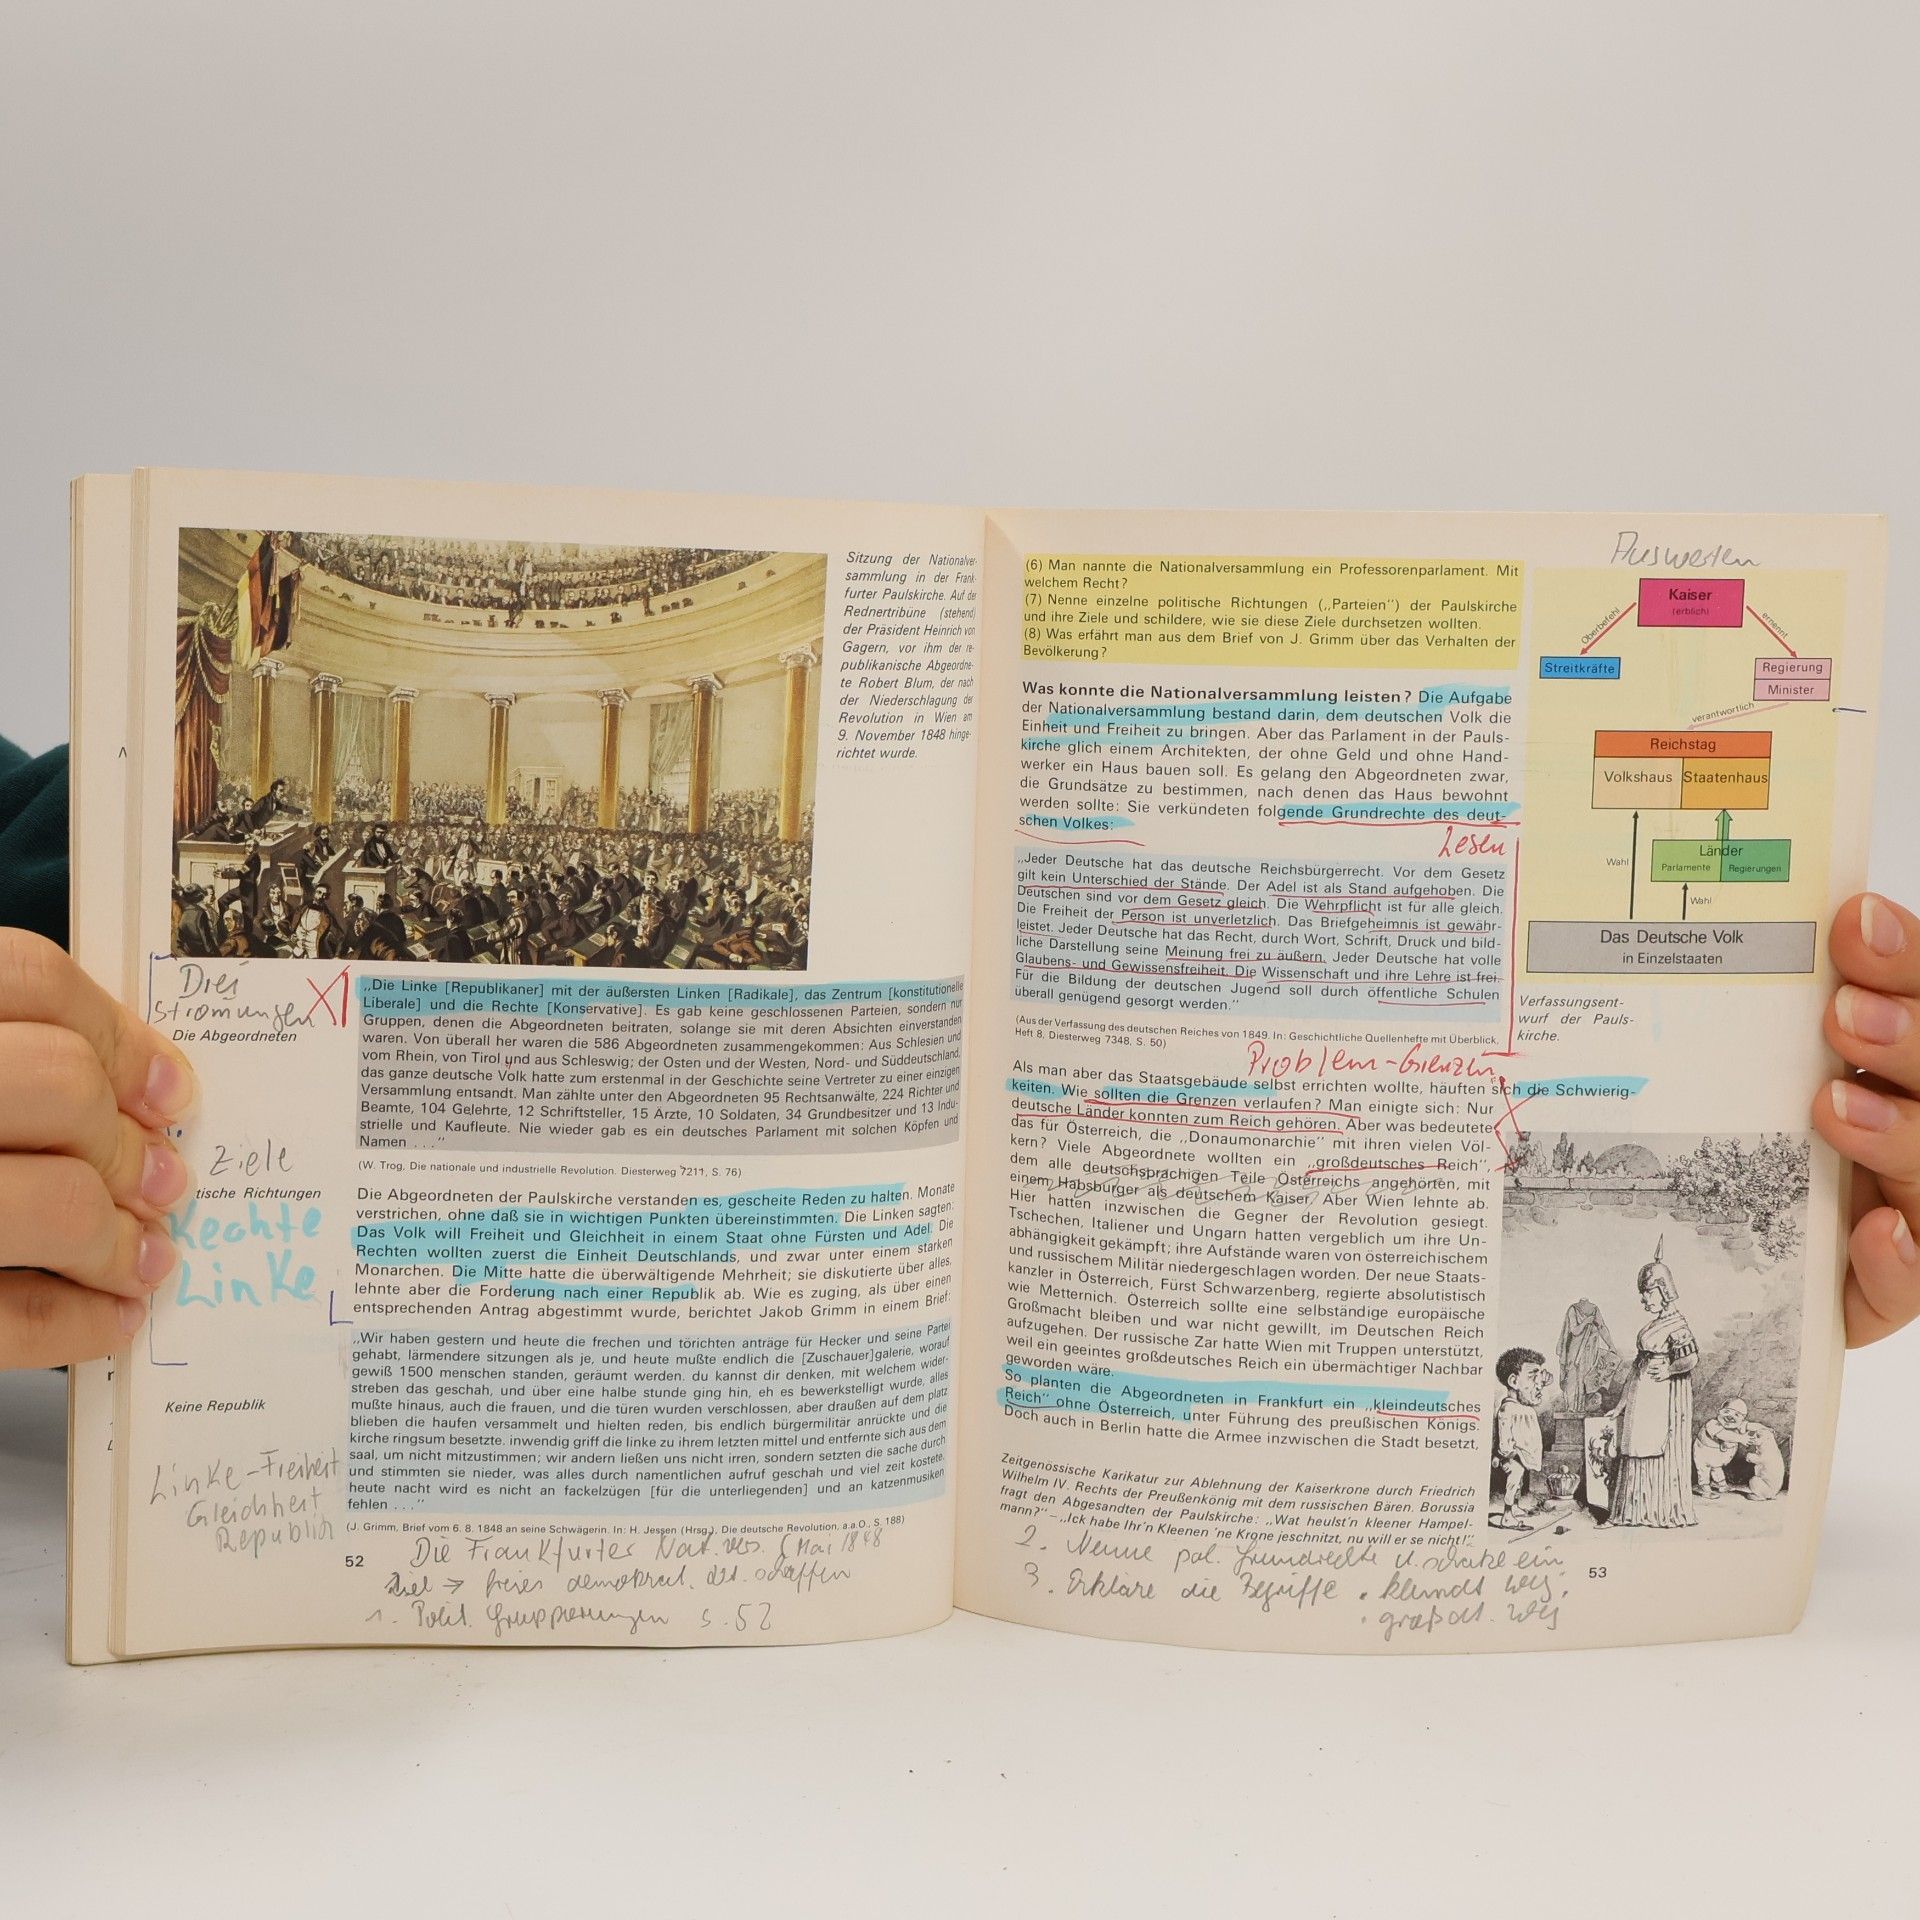 Sitzung der Nationalver-
sammlung in der Frank-
furter Paulskirche. Auf der
Rednertribüne (stehend)
der Präsident Heinrich von
Gagern, vor ihm der re-
publikanische Abgeordne-
te Robert Blum, der nach
der Niederschlagung der
Revolution in Wien am
9. November 1848 hinge-
richtet wurde.
Drei
Strömungen
Die Abgeordneten
„Die Linke [Republikaner] mit der äußersten Linken [Radikale], das Zentrum [konstitutionelle
Liberale] und die Rechte [Konservative]. Es gab keine geschlossenen Parteien, sondern nur
Gruppen, denen die Abgeordneten beitraten, solange sie mit deren Absichten einverstanden
waren. Von überall her waren die 586 Abgeordneten zusammengekommen: Aus Schlesien und
vom Rhein, von Tirol und aus Schleswig; der Osten und der Westen, Nord- und Süddeutschland,
das ganze deutsche Volk hatte zum erstenmal in der Geschichte seine Vertreter zu einer einzigen
Versammlung entsandt. Man zählte unter den Abgeordneten 95 Rechtsanwälte, 224 Richter und
Beamte, 104 Gelehrte, 12 Schriftsteller, 15 Ärzte, 10 Soldaten, 34 Grundbesitzer und 13 Indu-
strielle und Kaufleute. Nie wieder gab es ein deutsches Parlament mit solchen Köpfen und
Namen . . .“
(W. Trog, Die nationale und industrielle Revolution. Diesterweg 7211, S. 76)
Ziele
tische Richtungen
Rechte
Linke
Die Abgeordneten der Paulskirche verstanden es, gescheite Reden zu halten. Monate
verstrichen, ohne daß sie in wichtigen Punkten übereinstimmten. Die Linken sagten:
Das Volk will Freiheit und Gleichheit in einem Staat ohne Fürsten und Adel. Die
Rechten wollten zuerst die Einheit Deutschlands, und zwar unter einem starken
Monarchen. Die Mitte hatte die überwältigende Mehrheit; sie diskutierte über alles,
lehnte aber die Forderung nach einer Republik ab. Wie es zuging, als über einen
entsprechenden Antrag abgestimmt wurde, berichtet Jakob Grimm in einem Brief:
Keine Republik
„Wir haben gestern und heute die frechen und törichten anträge für Hecker und seine Partei
gehabt, lärmendere sitzungen als je, und heute mußte endlich die [Zuschauer]galerie, worauf
gewiß 1500 menschen standen, geräumt werden. du kannst dir denken, mit welchem wider-
streben das geschah, und über eine halbe stunde ging hin, eh es bewerkstelligt wurde, alles
mußte hinaus, auch die frauen, und die türen wurden verschlossen, aber draußen auf dem platz
blieben die haufen versammelt und hielten reden, bis endlich bürgermilitär anrückte und die
kirche ringsum besetzte. inwendig griff die linke zu ihrem letzten mittel und entfernte sich aus dem
saal, um nicht mitzustimmen; wir andern ließen uns nicht irren, sondern setzten die sache durch
und stimmten sie nieder, was alles durch namentlichen aufruf geschah und viel zeit kostete.
heute nacht wird es nicht an fackelzügen [für die unterliegenden] und an katzenmusiken
fehlen . . .“
(J. Grimm, Brief vom 6. 8. 1848 an seine Schwägerin. In: H. Jessen (Hrsg.), Die deutsche Revolution. a.a.O., S. 188)
Linke-Freiheit
Gleichheit
Republik
52
Die Frankfurter Nat. vers. (Mai 1848
Ziel → freies demokrat. dt. schaffen
1. Polit. Gruppierungen S. 52
(6) Man nannte die Nationalversammlung ein Professorenparlament. Mit
welchem Recht?
(7) Nenne einzelne politische Richtungen („Parteien“) der Paulskirche
und ihre Ziele und schildere, wie sie diese Ziele durchsetzen wollten.
(8) Was erfährt man aus dem Brief von J. Grimm über das Verhalten der
Bevölkerung?
Was konnte die Nationalversammlung leisten? Die Aufgabe
der Nationalversammlung bestand darin, dem deutschen Volk die
Einheit und Freiheit zu bringen. Aber das Parlament in der Pauls-
kirche glich einem Architekten, der ohne Geld und ohne Hand-
werker ein Haus bauen soll. Es gelang den Abgeordneten zwar,
die Grundsätze zu bestimmen, nach denen das Haus bewohnt
werden sollte: Sie verkündeten folgende Grundrechte des deut-
schen Volkes:
Lesen
„Jeder Deutsche hat das deutsche Reichsbürgerrecht. Vor dem Gesetz
gilt kein Unterschied der Stände. Der Adel ist als Stand aufgehoben. Die
Deutschen sind vor dem Gesetz gleich. Die Wehrpflicht ist für alle gleich.
Die Freiheit der Person ist unverletzlich. Das Briefgeheimnis ist gewähr-
leistet. Jeder Deutsche hat das Recht, durch Wort, Schrift, Druck und bild-
liche Darstellung seine Meinung frei zu äußern. Jeder Deutsche hat volle
Glaubens- und Gewissensfreiheit. Die Wissenschaft und ihre Lehre ist frei.
Für die Bildung der deutschen Jugend soll durch öffentliche Schulen
überall genügend gesorgt werden.“
(Aus der Verfassung des deutschen Reiches von 1849. In: Geschichtliche Quellenhefte mit Überblick,
Heft 8, Diesterweg 7348, S. 50)
Problem-Grenzen
Als man aber das Staatsgebäude selbst errichten wollte, häuften sich die Schwierig-
keiten. Wie sollten die Grenzen verlaufen? Man einigte sich: Nur
deutsche Länder konnten zum Reich gehören. Aber was bedeutete
das für Österreich, die „Donaumonarchie“ mit ihren vielen Völ-
kern? Viele Abgeordnete wollten ein „großdeutsches Reich“,
dem alle deutschsprachigen Teile Österreichs angehörten, mit
einem Habsburger als deutschem Kaiser. Aber Wien lehnte ab.
Hier hatten inzwischen die Gegner der Revolution gesiegt.
Tschechen, Italiener und Ungarn hatten vergeblich um ihre Un-
abhängigkeit gekämpft; ihre Aufstände waren von österreichischem
und russischem Militär niedergeschlagen worden. Der neue Staats-
kanzler in Österreich, Fürst Schwarzenberg, regierte absolutistisch
wie Metternich. Österreich sollte eine selbständige europäische
Großmacht bleiben und war nicht gewillt, im Deutschen Reich
aufzugehen. Der russische Zar hatte Wien mit Truppen unterstützt,
weil ein geeintes großdeutsches Reich ein übermächtiger Nachbar
geworden wäre.
So planten die Abgeordneten in Frankfurt ein „kleindeutsches
Reich“ ohne Österreich, unter Führung des preußischen Königs.
Doch auch in Berlin hatte die Armee inzwischen die Stadt besetzt,
Zeitgenössische Karikatur zur Ablehnung der Kaiserkrone durch Friedrich
Wilhelm IV. Rechts der Preußenkönig mit dem russischen Bären. Borussia
fragt den Abgesandten der Paulskirche: „Wat heulst'n kleener Hampel-
mann?“ – „Ick habe Ihr'n Kleenen 'ne Krone jeschnitzt, nu will er se nicht!“
2. Nenne pol. Grundrechte u. schätze ein
3. Erkläre die Begriffe . kleindt Weg.
. großdt. Weg
53
Auswerten
Kaiser
(erblich)
Oberbefehl
ernennt
Streitkräfte
Regierung
Minister
verantwortlich
Reichstag
Volkshaus Staatenhaus
Wahl
Länder
Parlamente Regierungen
Wahl
Das Deutsche Volk
in Einzelstaaten
Verfassungsent-
wurf der Pauls-
kirche.